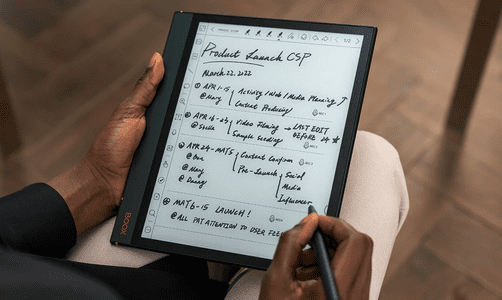 Product Launch CSP
March 22, 2022
① APR 1-15 Activity/Web/Media Planning
@Mary Content Producing
② APR 16-23 Video Filming → LAST EDIT
@Stella Sample Seeding BEFORE 24 *
③ APR 24-MAY 5 Content Confirm
@Dave Pre-Launch Social
@Mary Media
@Danny Influencer
④ MAY 6-15 LAUNCH!
@ALL PAY ATTENTION TO USER FEE
BOOX